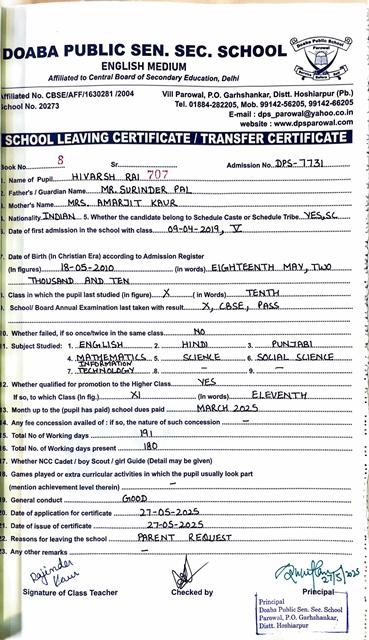 DOABA PUBLIC SEN. SEC. SCHOOL
ENGLISH MEDIUM
Affiliated to Central Board of Secondary Education, Delhi
Doaba Public School
Parowal
Affiliated No. CBSE/AFF/1630281 /2004 Vill Parowal, P.O. Garhshankar, Distt. Hoshiarpur (Pb.)
School No. 20273 Tel. 01884-282205, Mob. 99142-56205, 99142-66205
E-mail : dps_parowal@yahoo.co.in
website : www.dpsparowal.com
SCHOOL LEAVING CERTIFICATE / TRANSFER CERTIFICATE
Book No. 8 Sr. 707 Admission No. DPS-7731
1. Name of Pupil HIVARSH RAI
2. Father's / Guardian Name MR. SURINDER PAL
3. Mother's Name MRS. AMARJIT KAUR
4. Nationality INDIAN 5. Whether the candidate belong to Schedule Caste or Schedule Tribe YES, SC
6. Date of first admission in the school with class 09-04-2019, V
7. Date of Birth (In Christian Era) according to Admission Register
(In figures) 18-05-2010 (in words) EIGHTEENTH MAY, TWO
THOUSAND AND TEN
8. Class in which the pupil last studied (in figure) X ( in Words) TENTH
9. School/ Board Annual Examination last taken with result X, CBSE, PASS
10. Whether failed, if so once/twice in the same class NO
11. Subject Studied : 1. ENGLISH 2. HINDI 3. PUNJABI
4. MATHEMATICS 5. SCIENCE 6. SOCIAL SCIENCE
7. INFORMATION TECHNOLOGY 8. - 9. -
12. Whether qualified for promotion to the Higher Class YES
If so, to which Class (In fig.) XI (In Words) ELEVENTH
13. Month up to the (pupil has paid) school dues paid MARCH 2025
14. Any fee concession availed of : if so, the nature of such concession -
15. Total No of Working days 191
16. Total No. of Working days present 180
17. Whether NCC Cadet / boy Scout / girl Guide (Detail may be given)
18. Games played or extra curricular activities in which the pupil usually look part
(mention achievement level therein) -
19. General conduct GOOD
20. Date of application for certificate 27-05-2025
21. Date of issue of certificate 27-05-2025
22. Reasons for leaving the school PARENT REQUEST
23. Any other remarks -
Rajinder
Kaur
27/5/2025
Signature of Class Teacher Checked by Principal
Principal
Doaba Public Sen. Sec. School
Parowal, P.O. Garhshankar,
Distt. Hoshiarpur